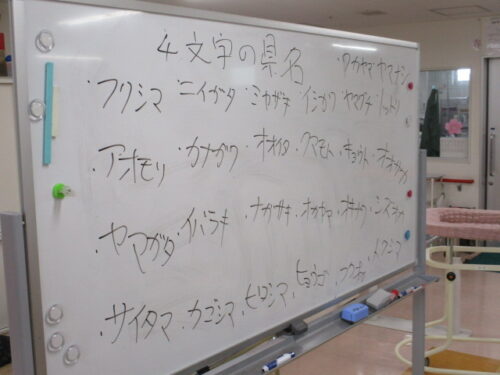 4文字の県名
・ワカヤマ ヤマナシ
・フクシマ ・ニイガタ ・ミヤザキ ・イシカワ ヤマグチ トットリ
・アオモリ ・カナガワ ・オオイタ ・クマモト ・キョウト ・オオサカ
・ヤマガタ ・イバラキ ・ナガサキ ・オカヤマ ・オキナワ ・シズオカ
・サイタマ ・カゴシマ ・ヒロシマ ・ヒョウゴ ・フクオカ ・トクシマ